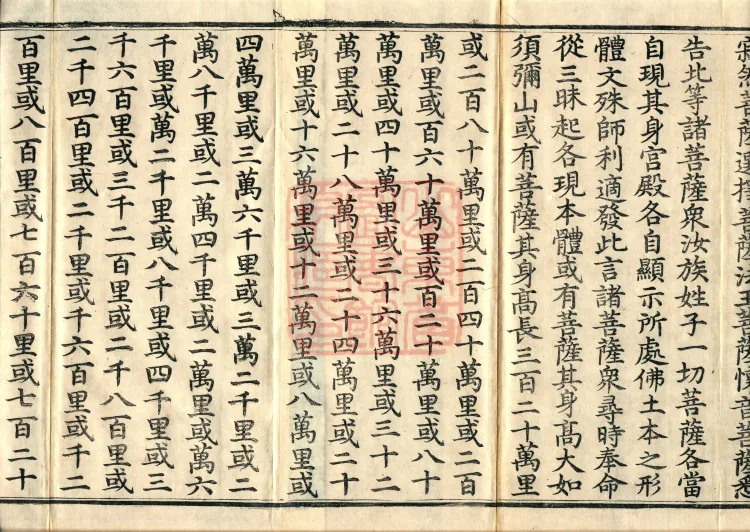 寂然菩薩選擇菩薩法王菩薩懷音菩薩悉
告此等諸菩薩衆汝族姓子一切菩薩各當
自現其身宮殿各自顯示所處佛土本之形
體文殊師利適發此言諸菩薩衆尋時奉命
從三昧起各現本體或有菩薩其身髙大如
須彌山或有菩薩其身髙長三百二十萬里
或二百八十萬里或二百四十萬里或二百
萬里或百六十萬里或百二十萬里或八十
萬里或四十萬里或三十六萬里或三十二
萬里或二十八萬里或二十四萬里或二十
萬里或十六萬里或十二萬里或八萬里或
四萬里或三萬六千里或三萬二千里或二
萬八千里或二萬四千里或二萬里或萬六
千里或萬二千里或八千里或四千里或三
千六百里或三千二百里或二千八百里或
二千四百里或二千里或千六百里或千二
百里或八百里或七百六十里或七百二十